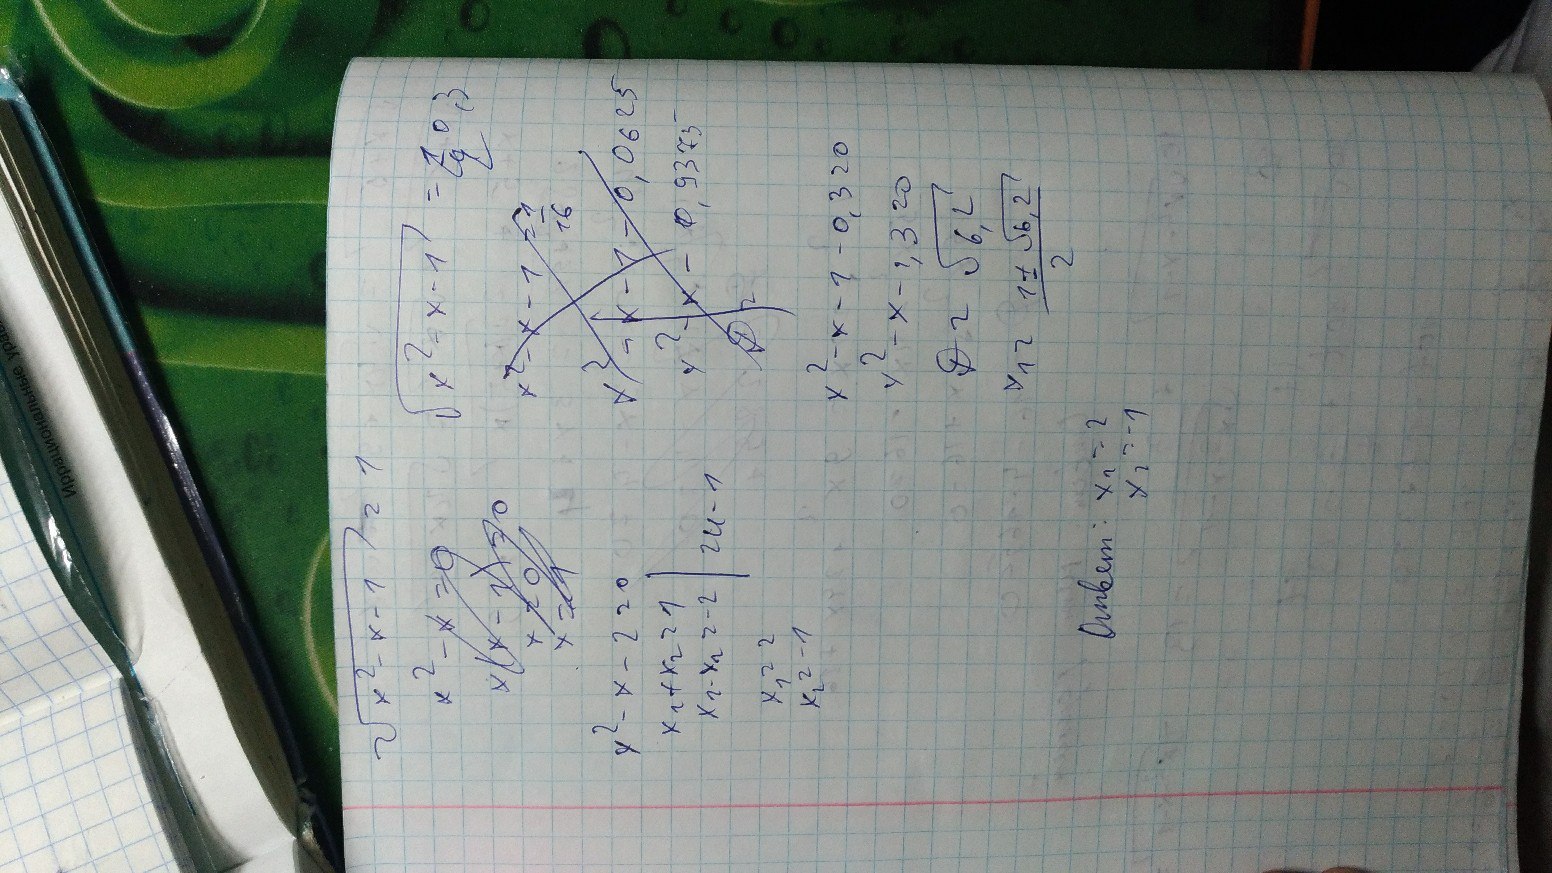 Иррациональные
√x²-x-1 = 1
x²-x=0
x(x-1)=0
x=0
x=1
x²-x-2=0
x₁+x₂=1
x₁·x₂=-2
x₁=2
x₂=-1
√x²-x-1 =
x²-x-1 = 1/16
x²-x-1-0,0625
x²-x-0,9375
D=
x²-x-1-0,3=0
x²-x-1,3=0
D=√6,2
x₁= 1±√6,2 / 2
Ответ: x₁=2
x₂=-1